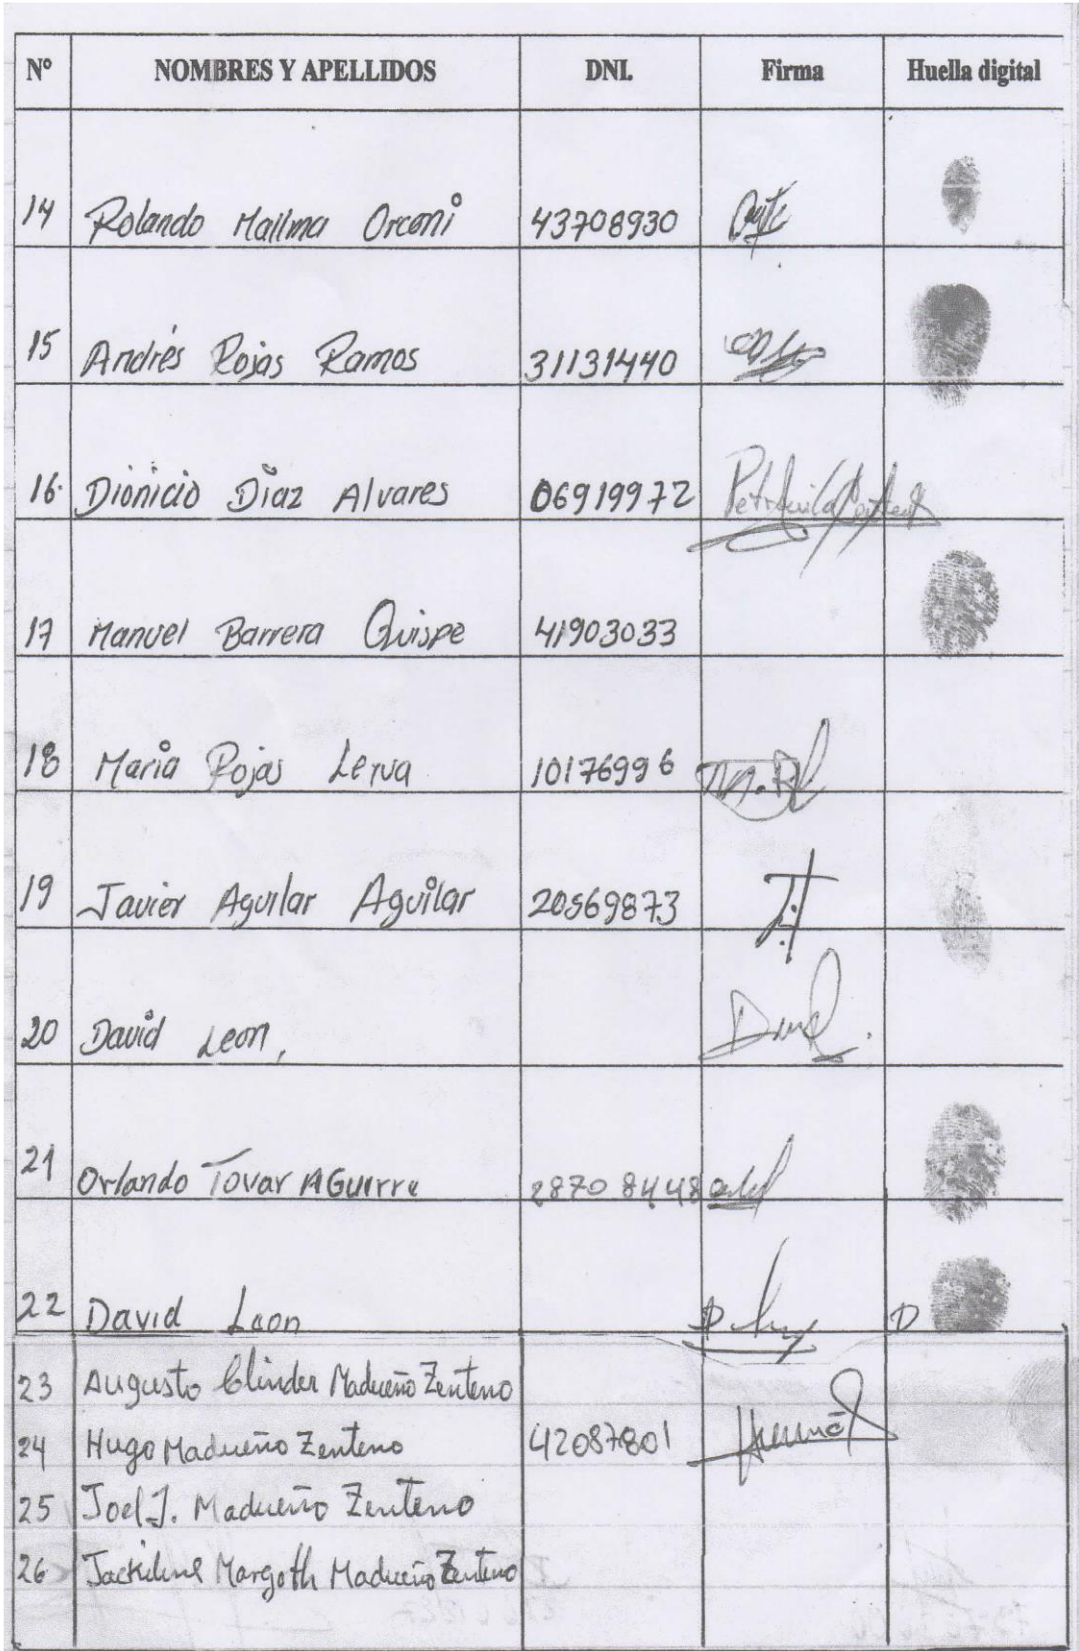 Nº NOMBRES Y APELLIDOS DNI. Firma Huella digital
14 Rolando Mallma Orconi 43708930
15 Andrés Rojas Ramos 31131440
16. Dionicio Díaz Alvares 06919972
17 Manuel Barrera Quispe 41903033
18 Maria Rojas Lerva 10176996 M.R
19 Javier Aguilar Aguilar 20569873
20 David Leon,
21 Orlando Tovar AGuirre 28708448
22 David Leon D
23 Augusto Clinder Madueño Zenteno
24 Hugo Madueño Zenteno 42087801
25 Joel J. Madueño Zenteno
26 Margoth Madueño Zenteno